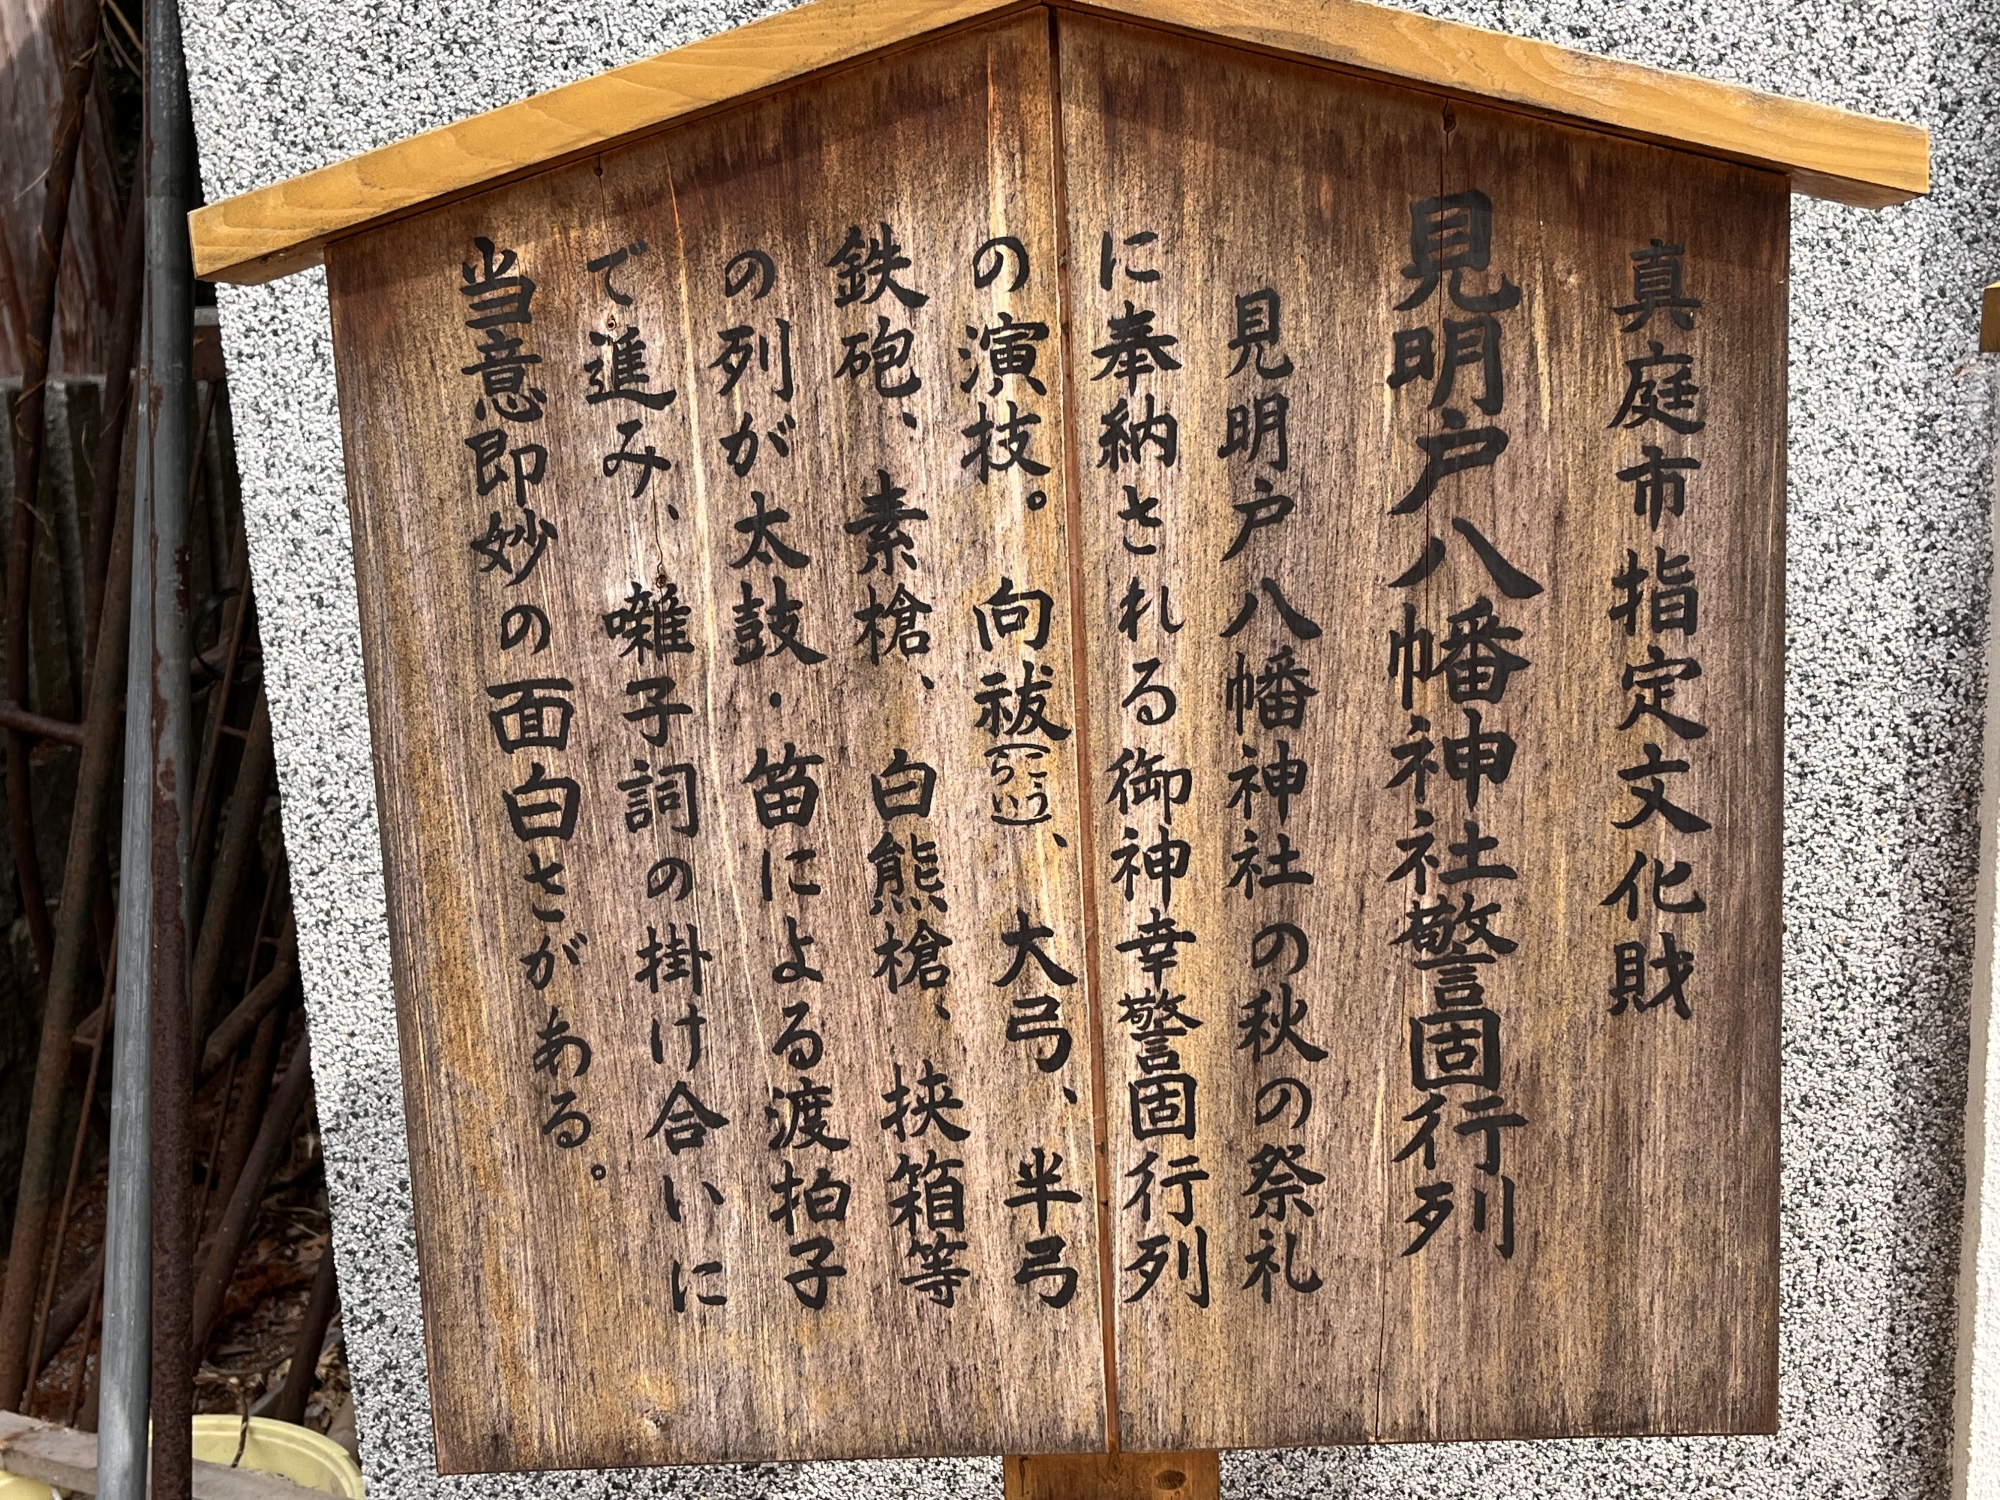 真庭市指定文化財
見明戸八幡神社警固行列
見明戸八幡神社の秋の祭礼
に奉納される御神幸警固行列
の演技。向祓(こうらい)、大弓、半弓
鉄砲、素槍、白熊槍、挟箱等
の列が太鼓・笛による渡拍子
で進み、囃子詞の掛け合いに
当意即妙の面白さがある。